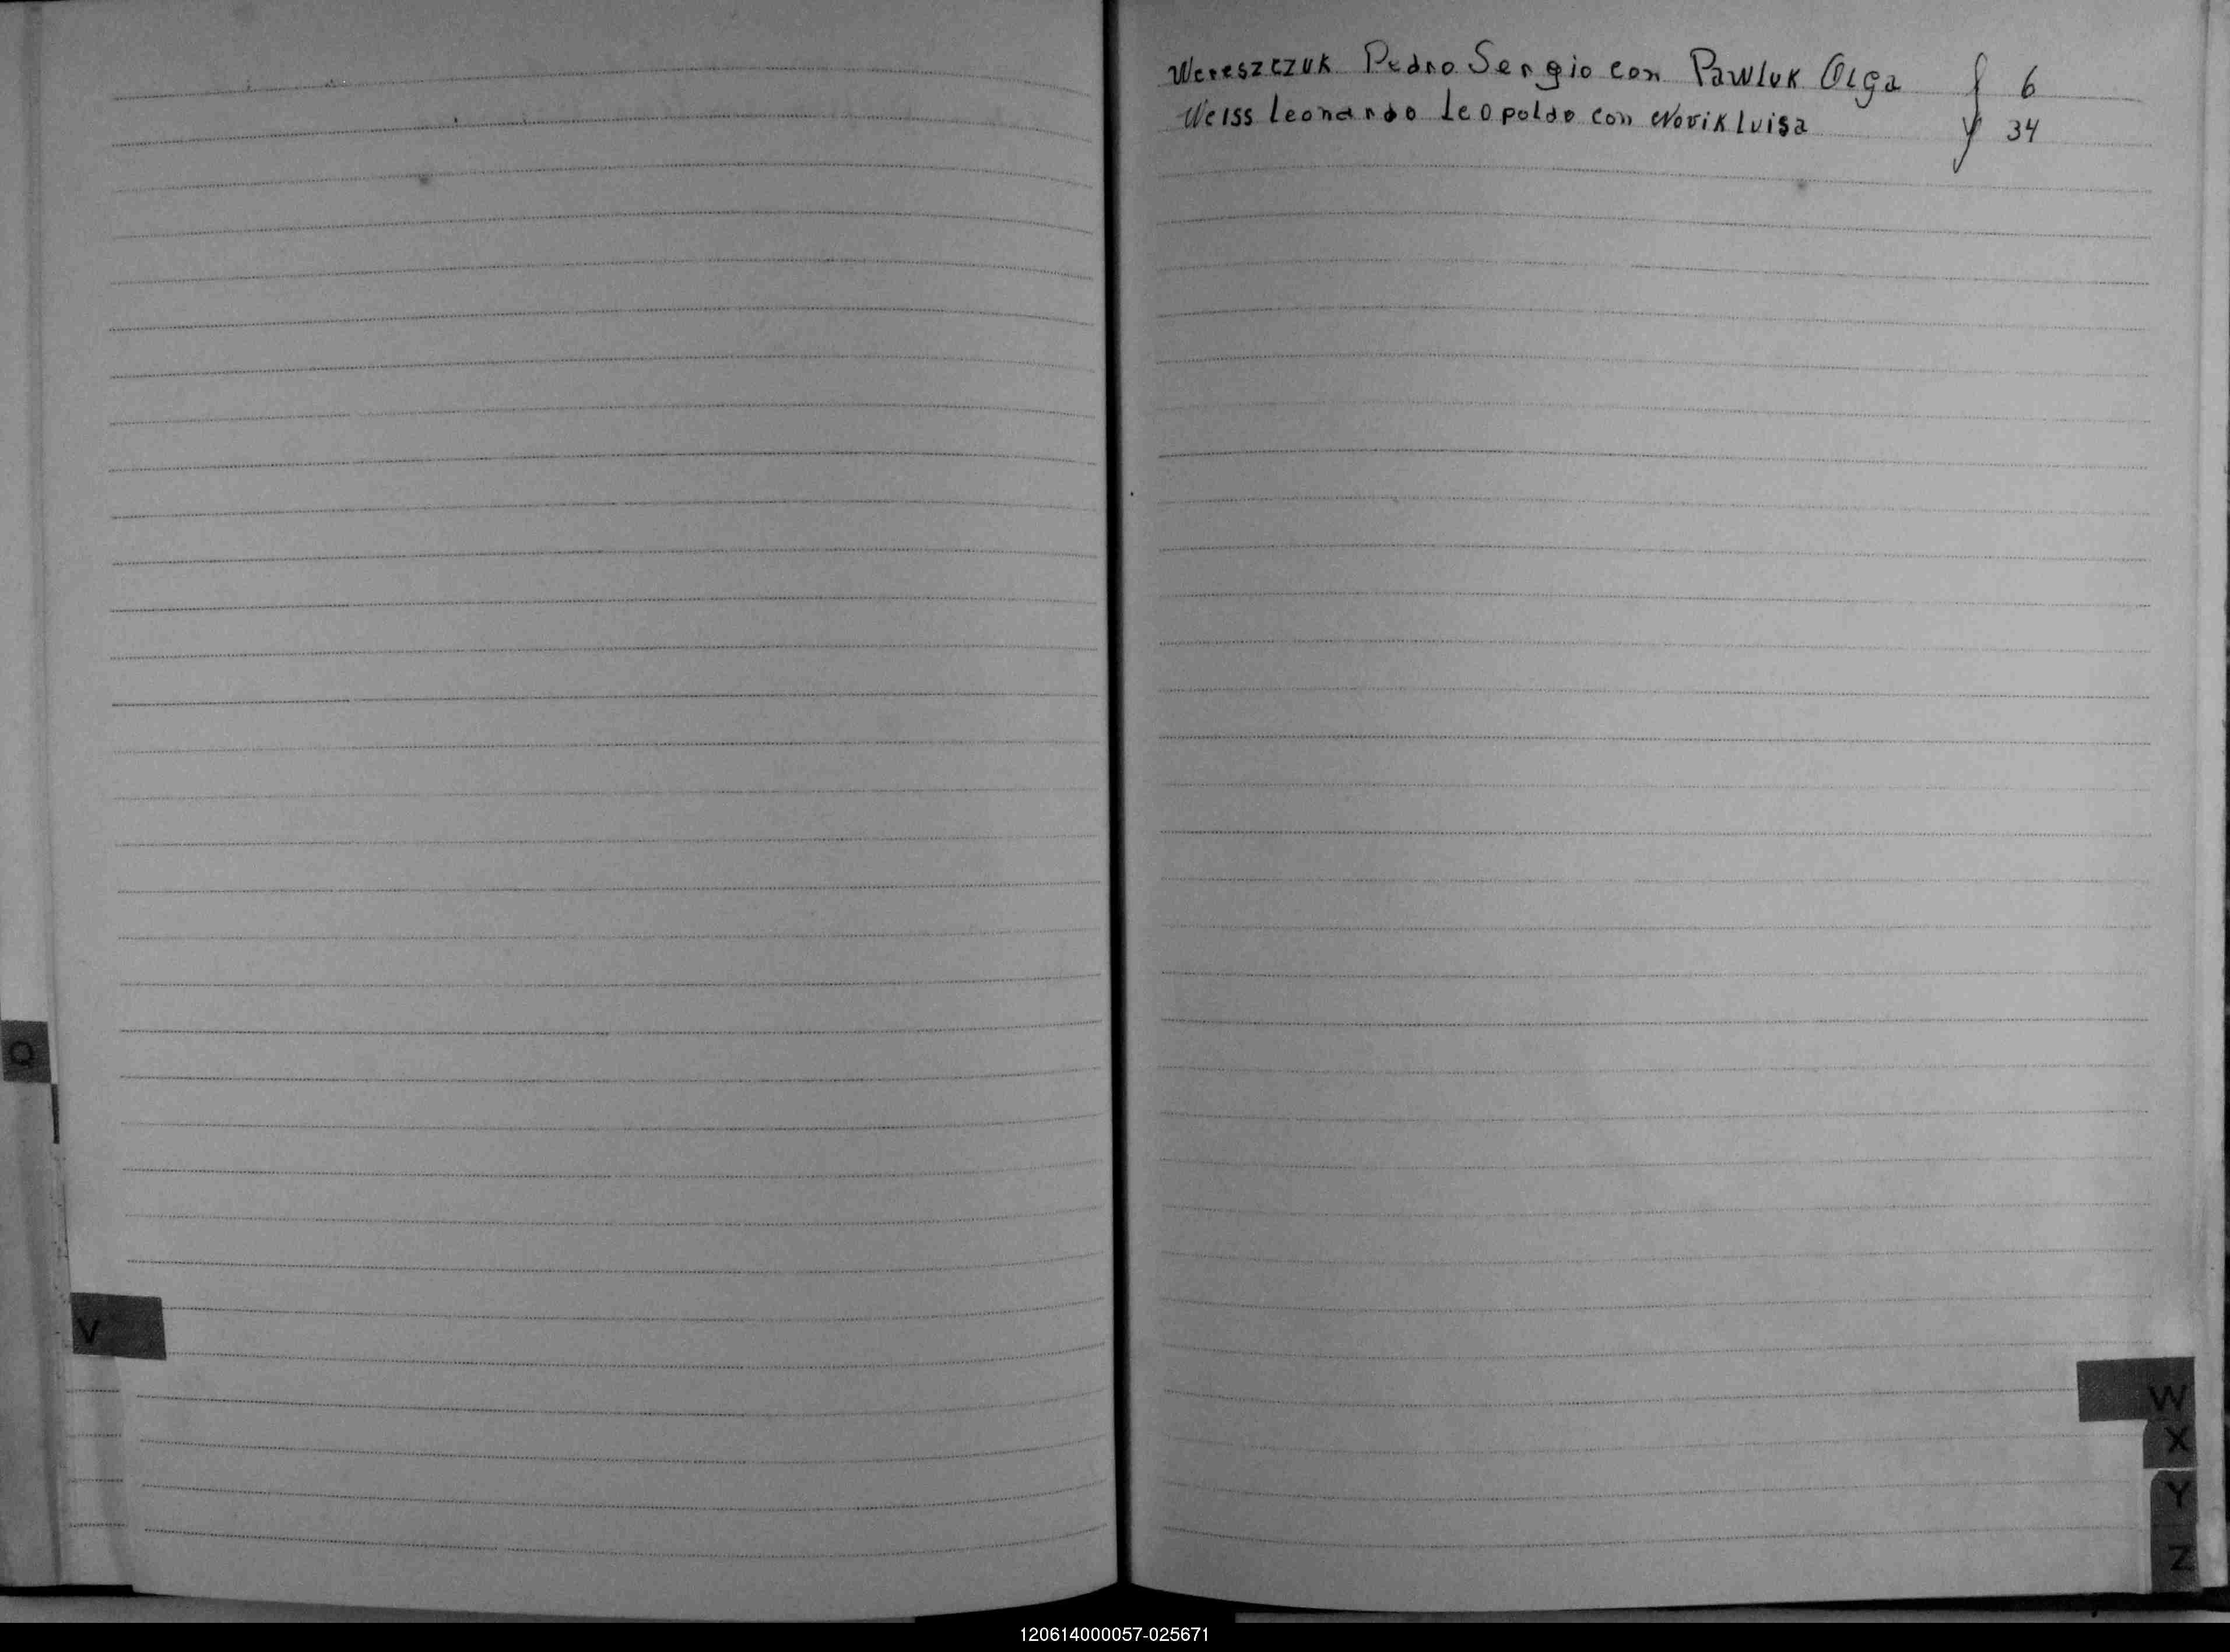 Wereszczuk Pedro Sergio con Pawluk Olga f 6
Weiss Leonardo Leopoldo con Novik Luisa f 34
Q
V
W
X
Y
Z
120614000057-025671